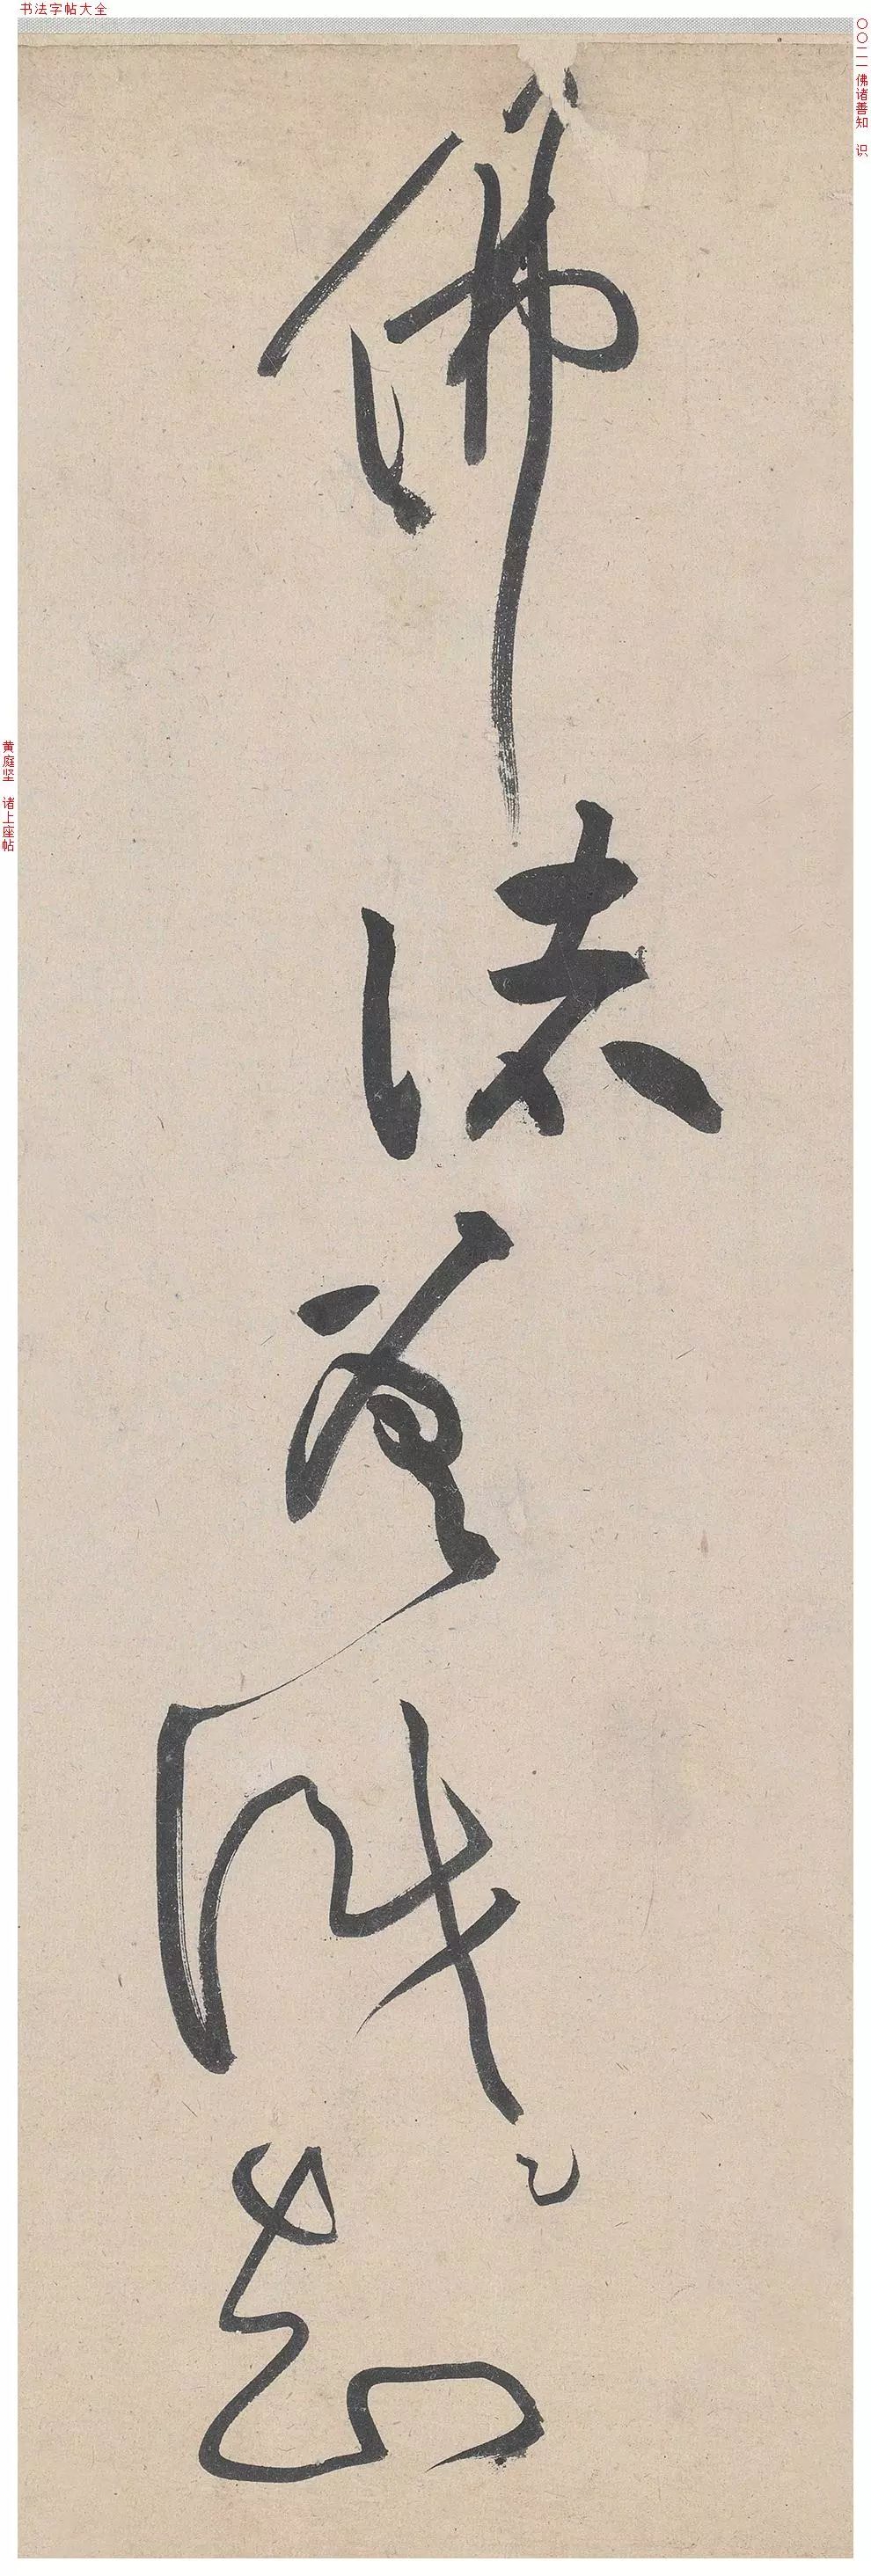 书法字帖大全
〇〇二一 佛诸善知 识
佛諸善識知
黄庭坚 诸上座帖